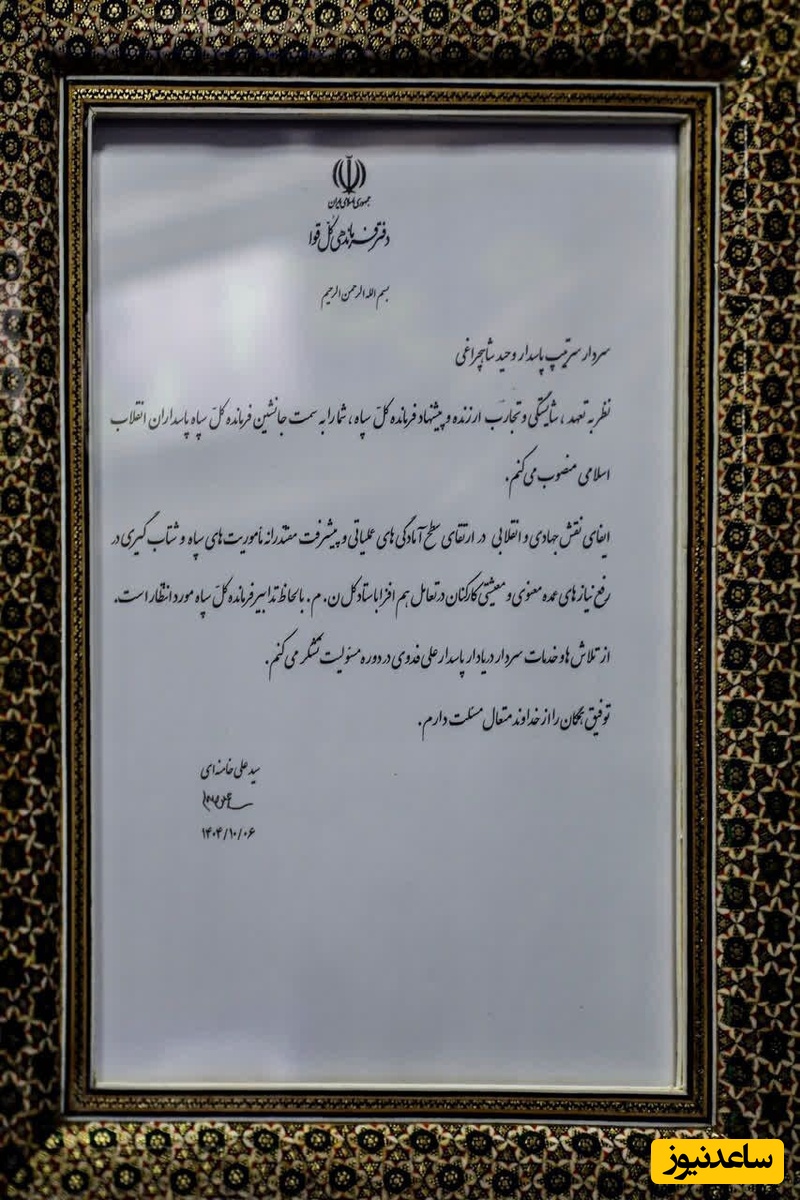 جمهوری اسلامی ایران
دفتر فرماندهی کل قوا
بسم الله الرحمن الرحیم
سردار سرتیپ پاسدار وحید شاهچراغی
نظر به تعهد، شایستگی و تجارب ارزنده و پیشنهاد فرمانده کلّ سپاه، شما را به سمت جانشین فرمانده کلّ سپاه پاسداران انقلاب
اسلامی منصوب می‌کنم.
ایفای نقش جهادی و انقلابی در ارتقای سطح آمادگی‌های عملیاتی و پیشرفت مقتدرانه مأموریت‌های سپاه و شتاب‌گیری در
رفع نیازهای عمده معنوی و معیشتی کارکنان در تعامل هم‌افزا با ستاد کل ن. م. با لحاظ تدابیر فرمانده کلّ سپاه مورد انتظار است.
از تلاش‌ها و خدمات سردار دریادار پاسدار علی فدوی در دوره مسئولیت تشکر می‌کنم.
توفیق همگان را از خداوند متعال مسئلت دارم.
سید علی خامنه‌ای
۱۴۰۴/۱۰/۰۶
ساعدنیوز